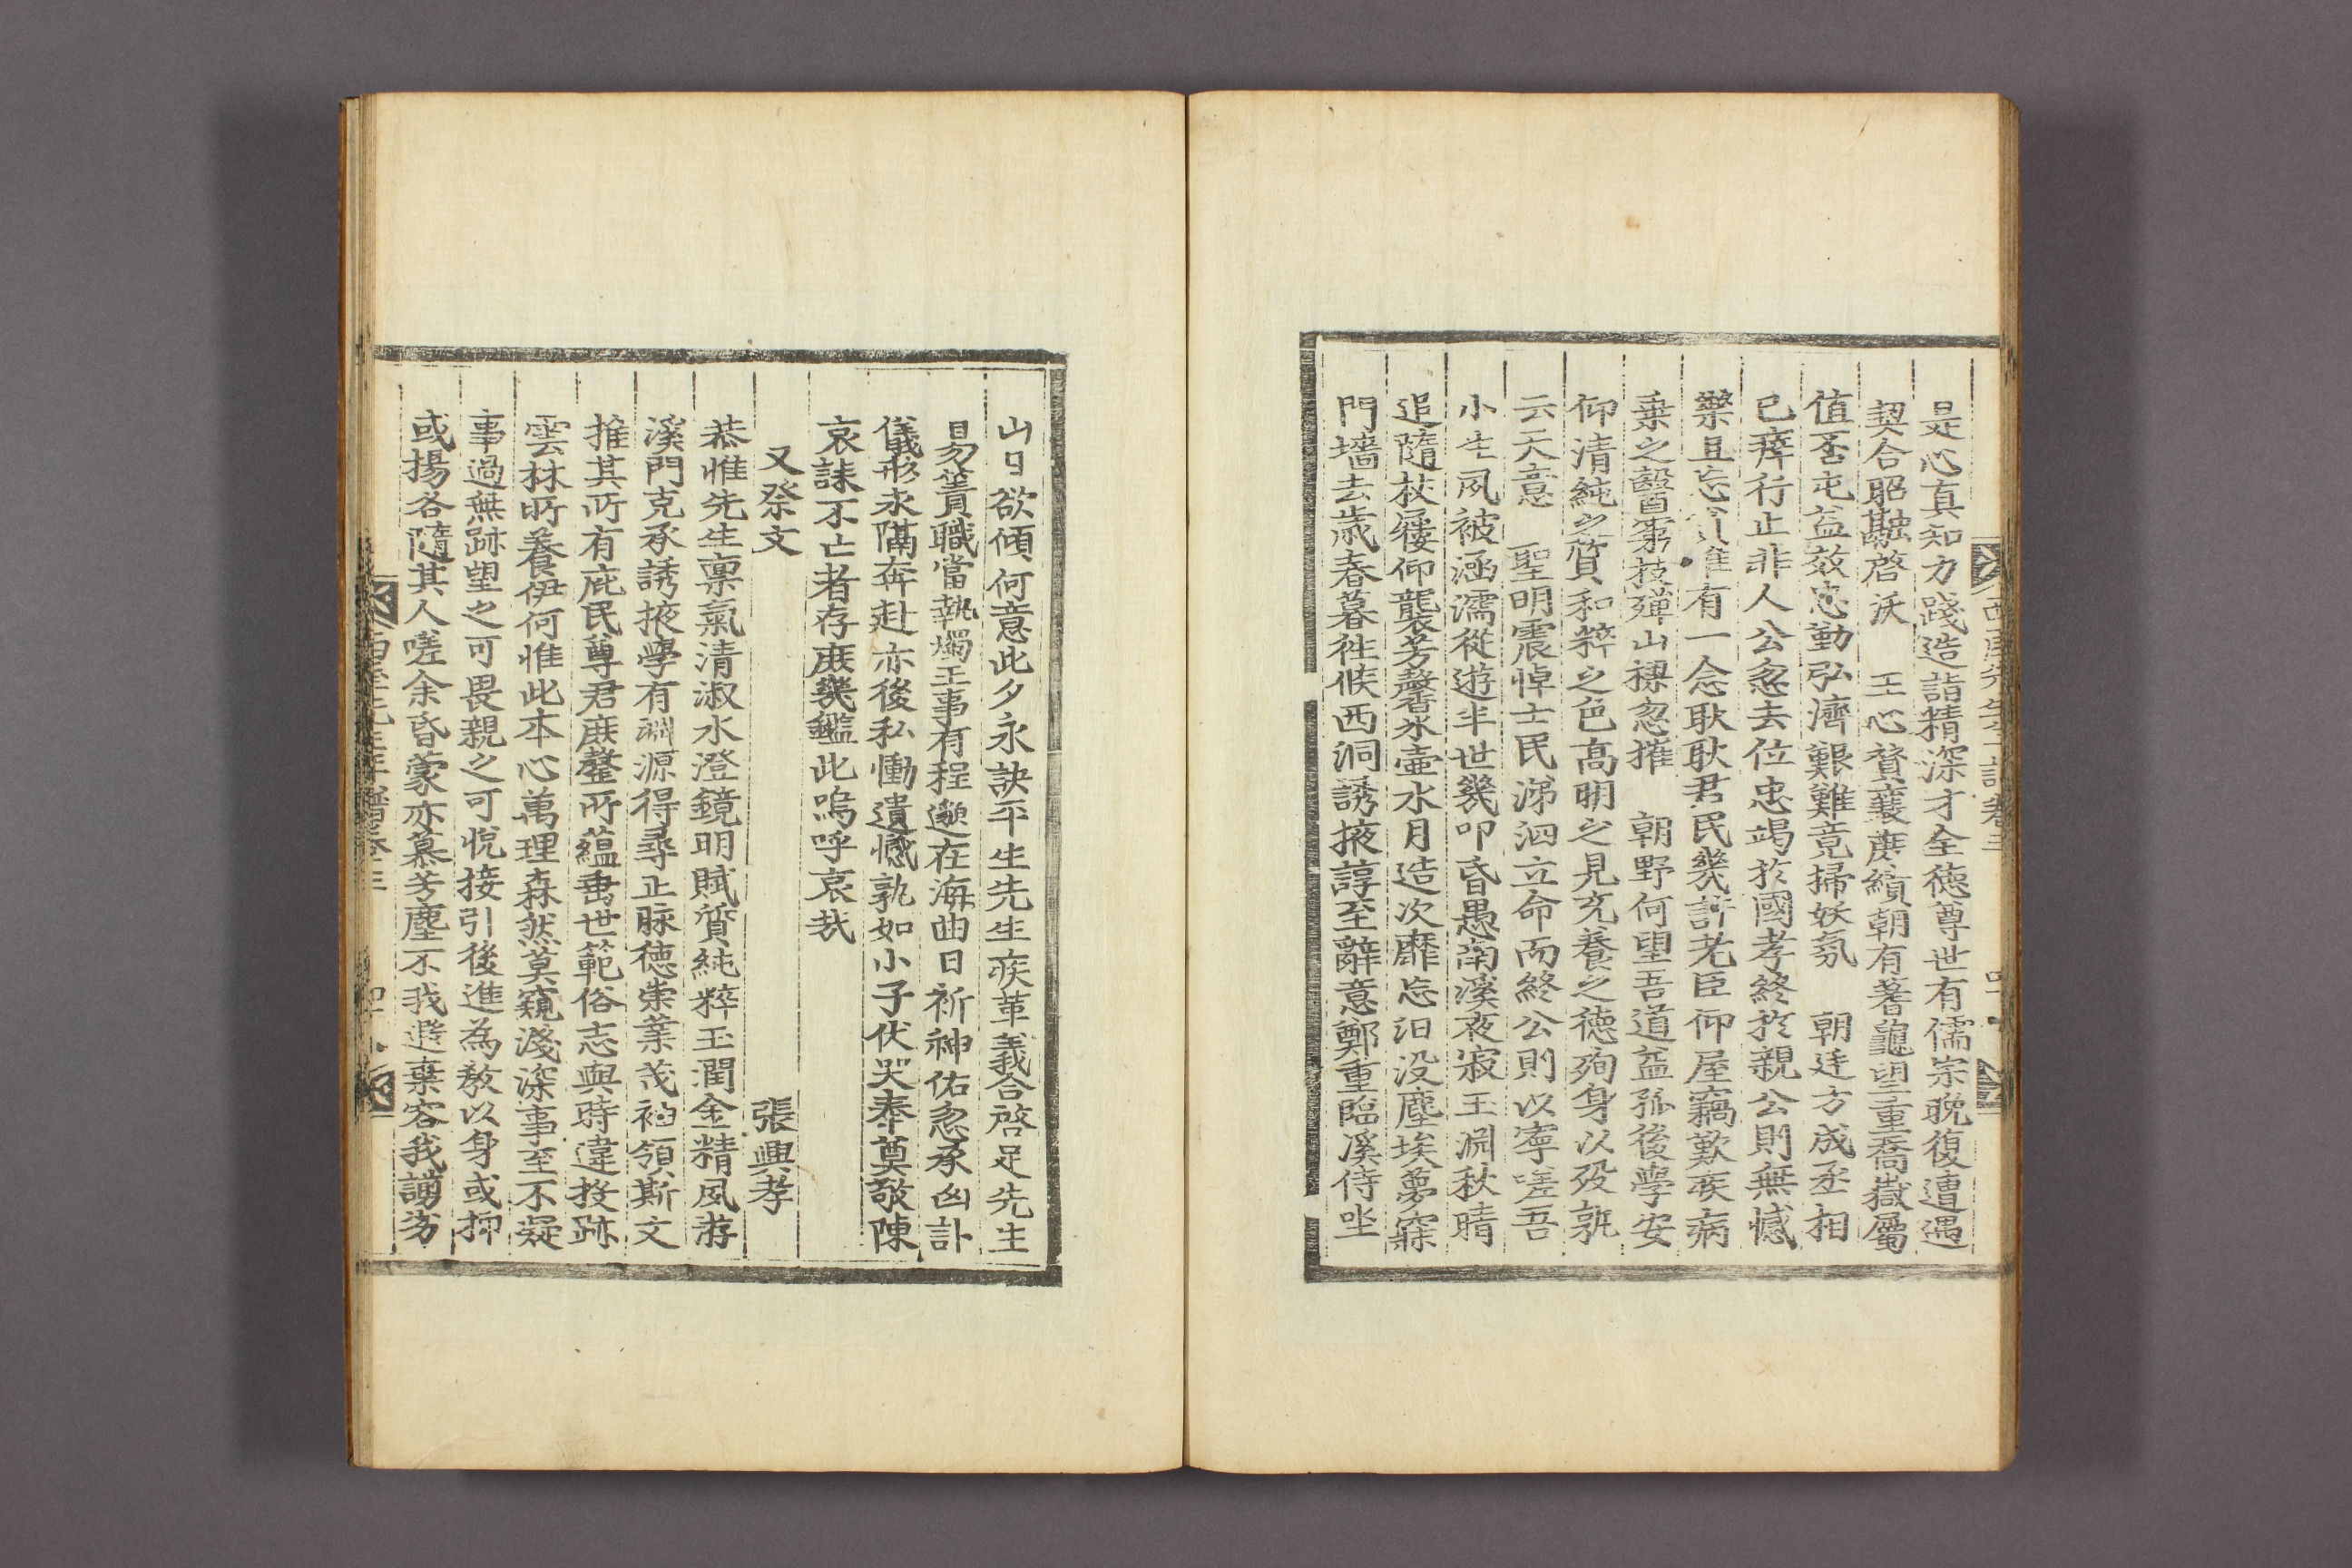 是心真知力踐造詣精深才全德尊世有儒宗晚復遭遇
契合昭融啓沃　王心贊襄庶績朝有蓍龜望重喬嶽屬
值否屯益效忠勤弘濟艱難竟掃妖氛　朝廷方成丞相
已瘁行止非人公忽去位忠竭於國孝終於親公則無憾
樂且忘　惟有一念耿耿君民幾許老臣仰屋竊歎疾病
乘之醫窮技殫山樑忽摧　朝野何望吾道益孤後學安
仰清純之質和粹之色高明之見充養之德殉身以歿孰
云天意　聖明震悼士民涕泗立命而終公則以寧嗟吾
小生夙被涵濡從遊半世幾叩昏愚南溪夜寂玉淵秋晴
追隨杖屨仰襲芳馨氷壺水月造次靡忘汩沒塵埃夢寐
門墻去歲春暮徃候西洞誘掖諄至辭意鄭重臨溪侍坐
山日欲傾何意此夕永訣平生先生疾革義合啓足先生
易簀職當執燭王事有程邈在海曲日祈神佑忽承凶訃
儀形永隔奔赴亦後私慟遺憾孰如小子伏哭奉奠敢陳
哀誄不亡者存庶幾鑑此嗚呼哀哉
又祭文　張興孝
恭惟先生禀氣清淑水澄鏡明賦質純粹玉潤金精夙游
溪門克承誘掖學有淵源得尋正脉德崇業茂袖領斯文
推其所有庇民尊君庶釐所蘊壽世範俗志與時違投跡
雲林所養伊何惟此本心萬理森然莫窺淺深事至不凝
事過無跡望之可畏親之可悅接引後進為敎以身或抑
或揚各隨其人嗟余昏蒙亦慕芳塵不我遐棄容我謭劣